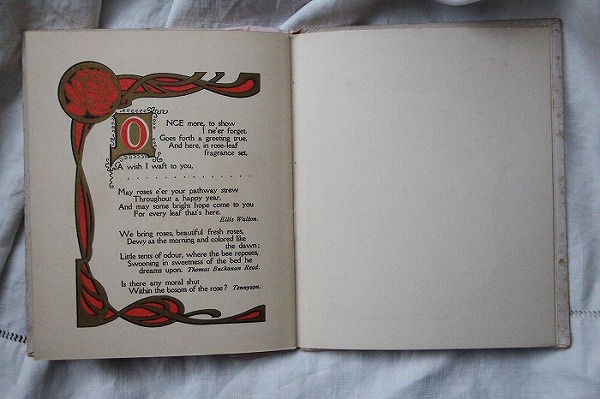 ONCE more, to show
I ne'er forget,
Goes forth a greeting true,
And here, in rose-leaf
fragrance set,
A wish I waft to you,
. . . . . . . . . . . . . . .
May roses e'er your pathway strew
Throughout a happy year,
And may some bright hope come to you
For every leaf that's here.
Ellis Walton.
We bring roses, beautiful fresh roses,
Dewy as the morning and colored like
the dawn;
Little tents of odour, where the bee reposes,
Swooning in sweetness of the bed he
dreams upon. Thomas Buchanan Read.
Is there any moral shut
Within the bosom of the rose? Tennyson.